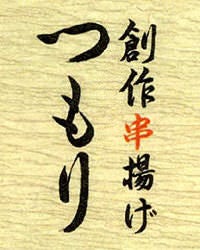 創作串揚げ
つもり